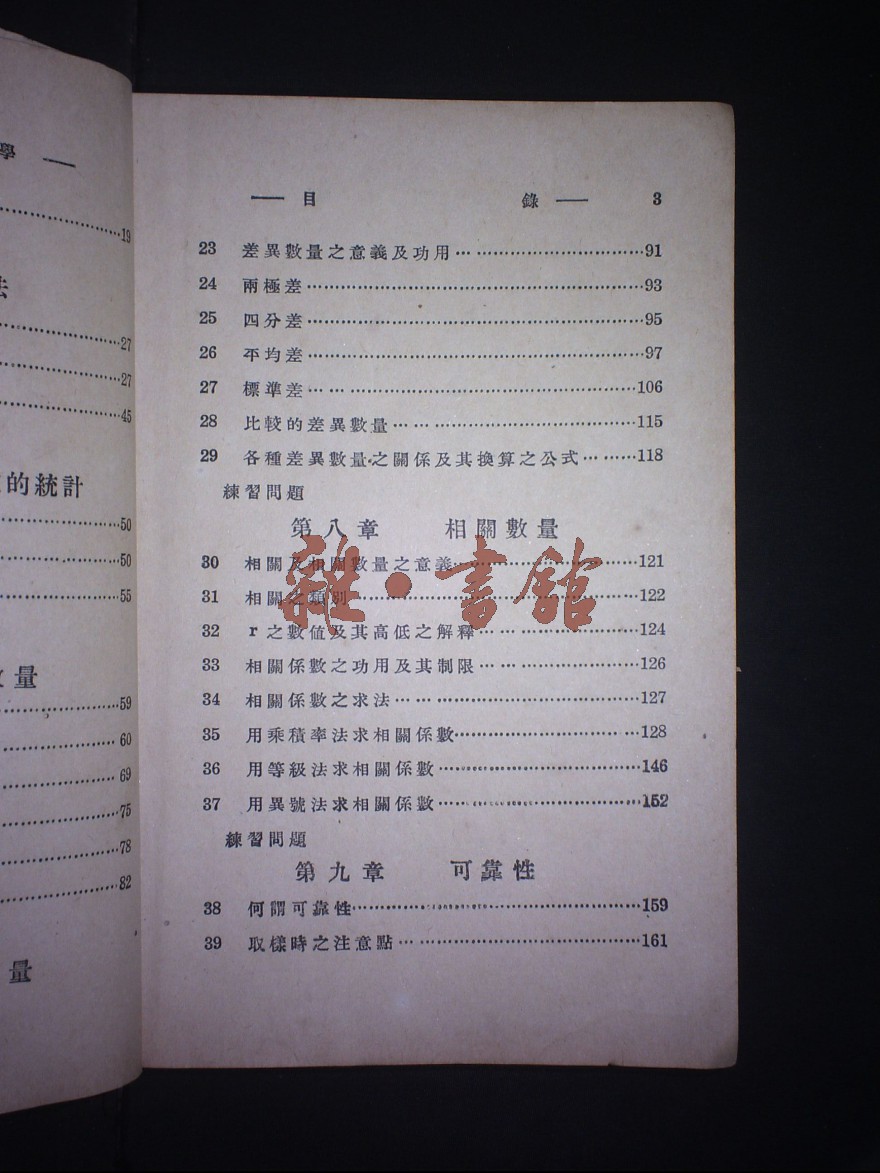 學 —
19
法
27
27
45
的統計
50
50
55
數量
59
60
69
75
78
82
量
— 目 錄 — 3
23 差異數量之意義及功用……………………………91
24 兩極差……………………………93
25 四分差……………………………95
26 平均差……………………………97
27 標準差……………………………106
28 比較的差異數量……………………………115
29 各種差異數量之關係及其換算之公式………118
練習問題
第八章 相關數量
30 相關及相關數量之意義……………………………121
31 相關之類別……………………………122
32 r之數值及其高低之解釋……………………………124
33 相關係數之功用及其制限……………………………126
34 相關係數之求法……………………………127
35 用乘積率法求相關係數……………………………128
36 用等級法求相關係數……………………………146
37 用異號法求相關係數……………………………152
練習問題
第九章 可靠性
38 何謂可靠性……………………………159
39 取樣時之注意點……………………………161
雜·書館